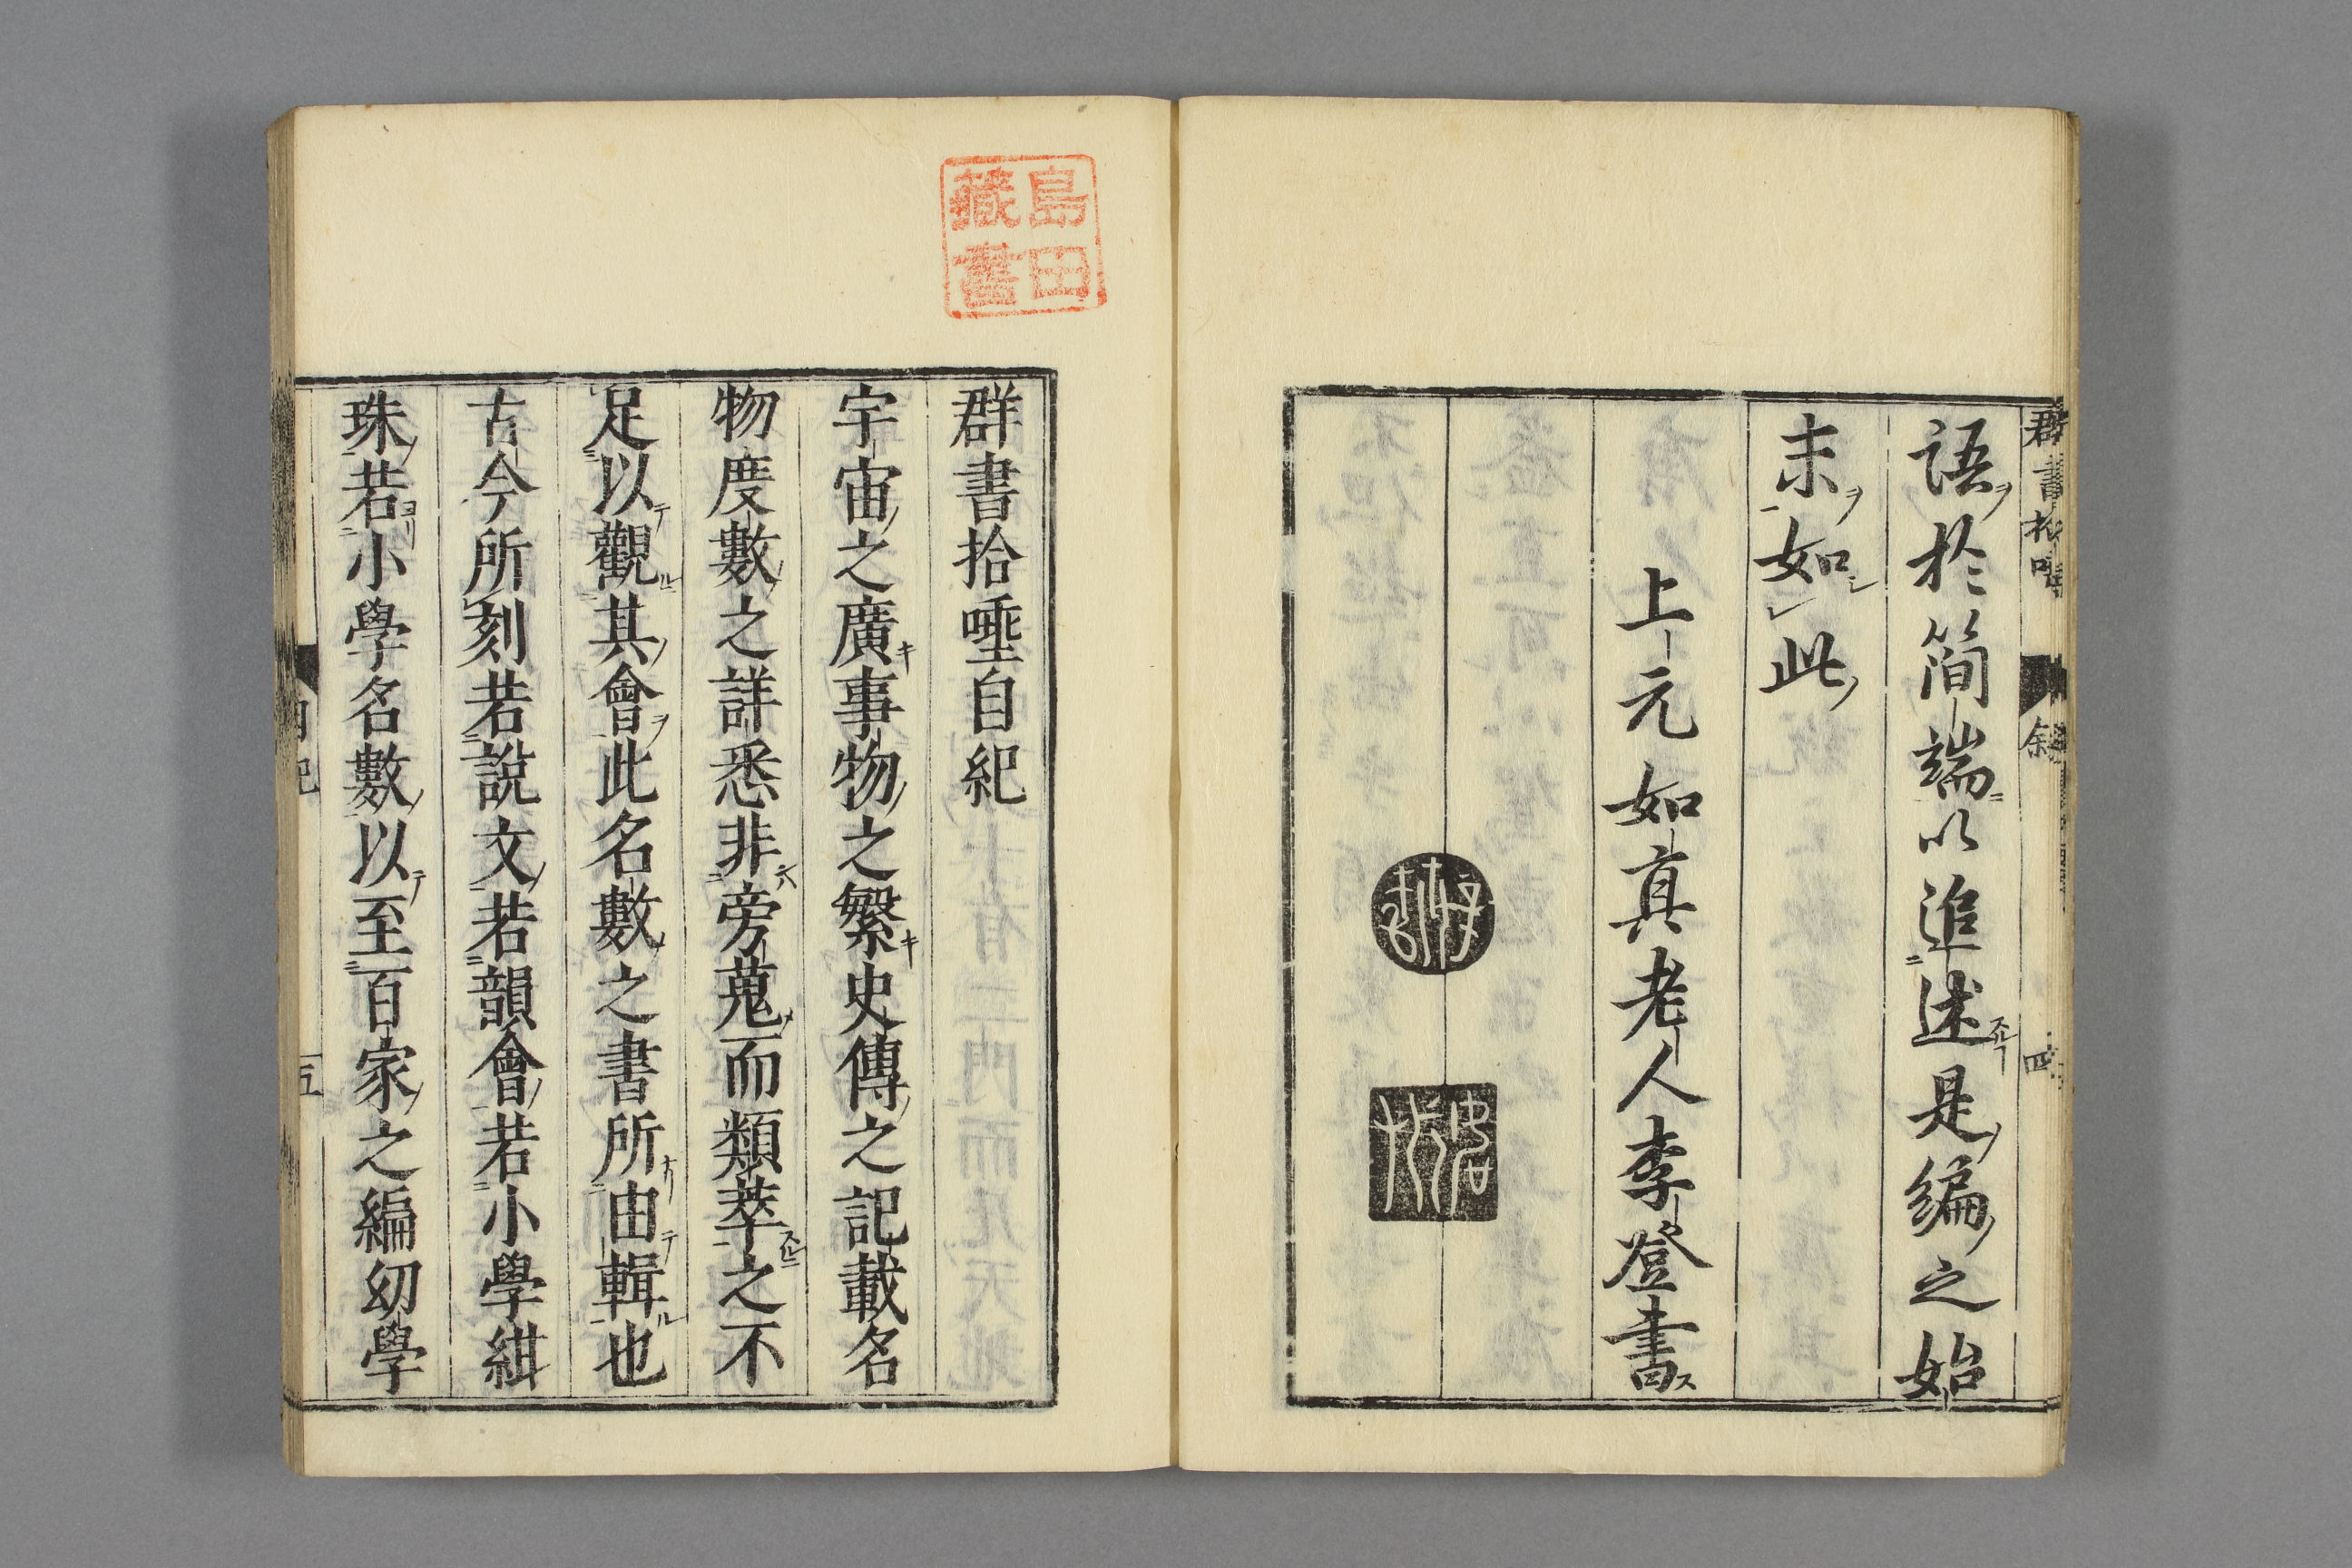 群書拾唾 叙 四
語於簡端以追述是編之始
末如此
上元如真老人李登書
島田
藏書
群書拾唾自紀
宇宙之廣事物之繁史傳之記載名
物度數之詳悉非旁蒐而類萃之不
足以觀其會此名數之書所由輯也
古今所刻若說文若韻會若小學紺
珠若小學名數以至百家之編幼學
自紀 五